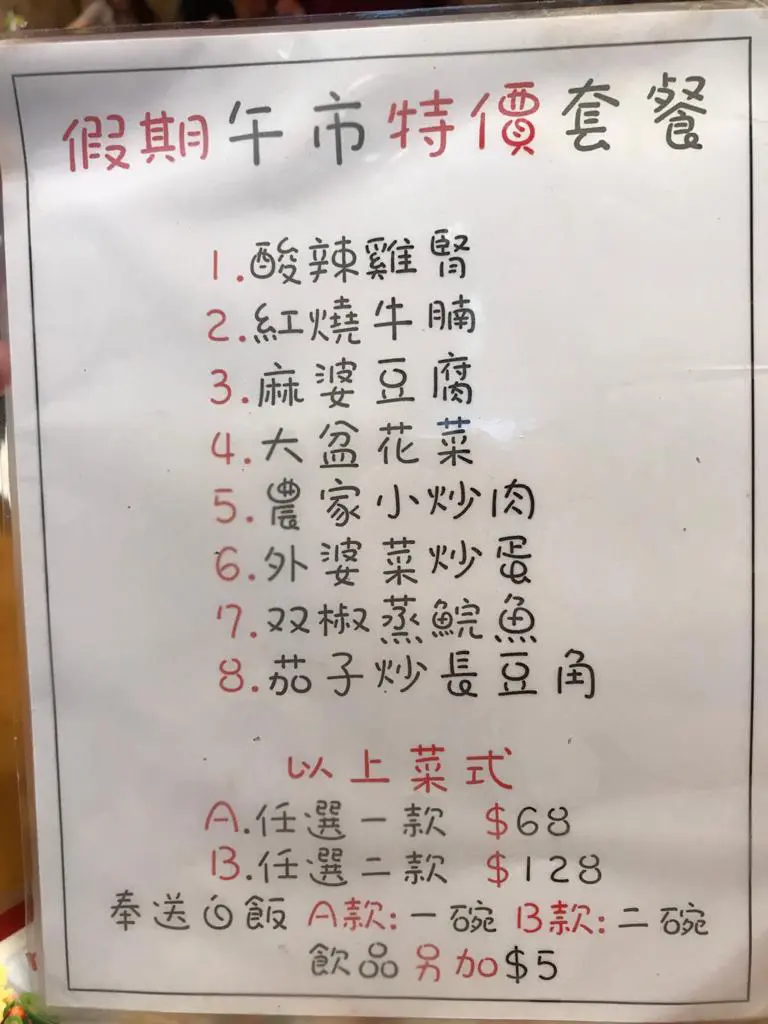 假期午市特價套餐
1.酸辣雞腎
2.紅燒牛腩
3.麻婆豆腐
4.大盆花菜
5.農家小炒肉
6.外婆菜炒蛋
7.双椒蒸鯇魚
8.茄子炒長豆角
以上菜式
A.任選一款 $68
B.任選二款 $128
奉送白飯 A款:一碗 B款:二碗
飲品另加$5